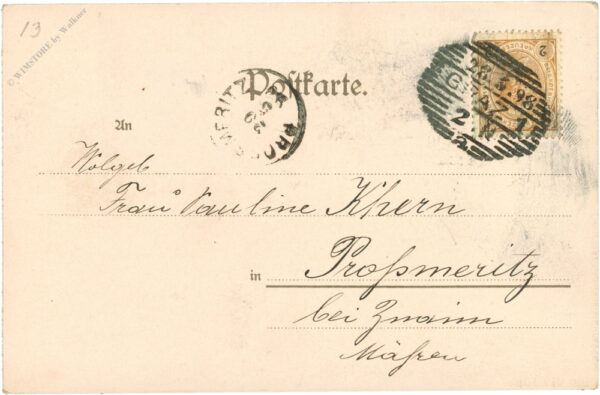 13
© WIMSTORE by Walkner
Postkarte.
2
KREUZER
28.3.98
GRAZ
2 1
PROSSMERITZ
An
Wolgeb
Frau Pauline Khern
in Proßmeritz
bei Znaim
Mähren